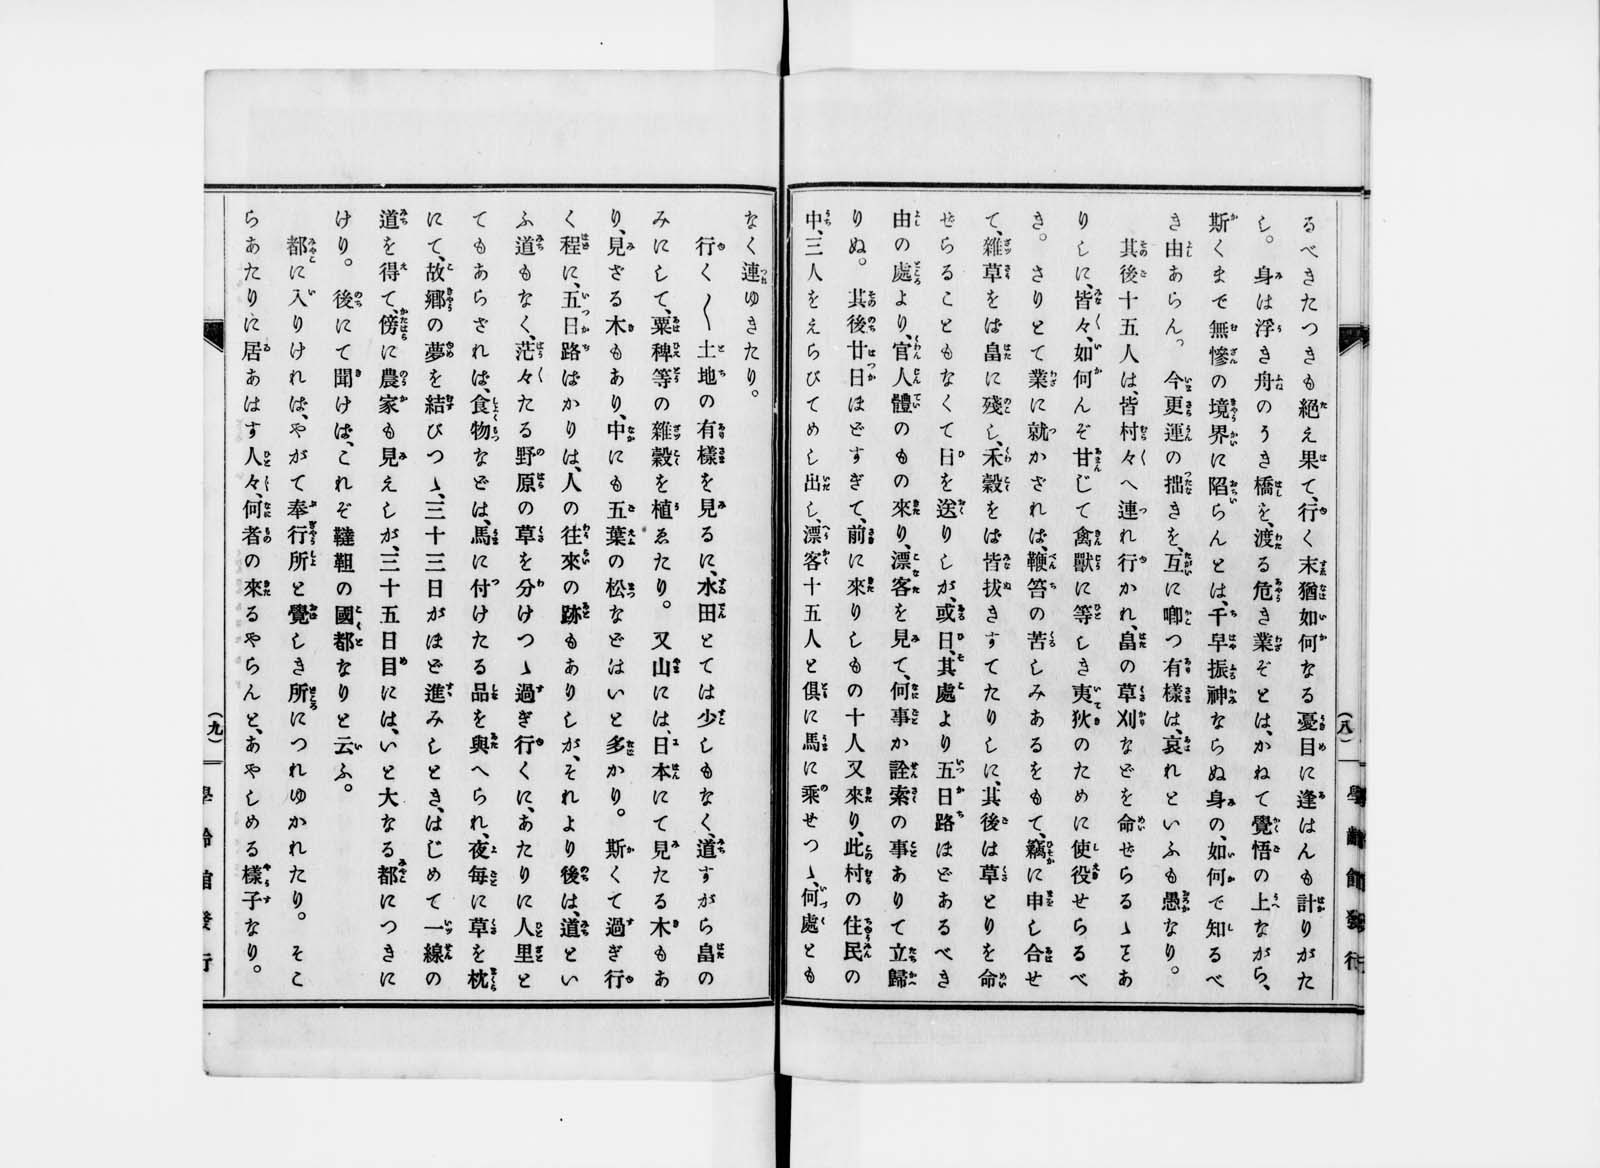 るべきたつきも絶え果て、行く末猶如何なる憂目に逢はんも計りがた
し。身は浮き舟のうき橋を、渡る危き業ぞとは、かねて覺悟の上ながら、
斯くまで無慘の境界に陷らんとは、千早振神ならぬ身の、如何で知るべ
き由あらん。今更運の拙きを、互に喞つ有樣は、哀れといふも愚なり。
其後十五人は、皆村々へ連れ行かれ、畠の草刈などを命せらるゝとあ
りしに、皆々、如何んぞ甘じて禽獸に等しき夷狄のために使役せらるべ
き。さりとて業に就かざれば、鞭笞の苦しみあるをもて、竊に申し合せ
て、雜草をば畠に殘し、禾穀をば皆拔きすてたりしに、其後は草とりを命
ぜらることもなくて日を送りしが、或日、其處より五日路ほどあるべき
由の處より、官人體のもの來り、漂客を見て、何事か詮索の事ありて立歸
りぬ。其後廿日ほどすぎて、前に來りしもの十人又來り、此村の住民の
中、三人をえらびてめし出し、漂客十五人と倶に馬に乘せつゝ、何處とも
(八)
學齡館發行
なく連ゆきたり。
行く〳〵土地の有樣を見るに、水田とては少しもなく、道すがら畠の
みにして、粟稗等の雜穀を植ゑたり。又山には、日本にて見たる木もあ
り、見ざる木もあり、中にも五葉の松などはいと多かり。斯くて過ぎ行
く程に、五日路ばかりは、人の往來の跡もありしが、それより後は、道とい
ふ道もなく、茫々たる野原の草を分けつゝ過ぎ行くに、あたりに人里と
てもあらざれば、食物などは、馬に付けたる品を與へられ、夜毎に草を枕
にて、故鄕の夢を結びつゝ、三十三日がほど進みしとき、はじめて一線の
道を得て、傍に農家も見えしが、三十五日目には、いと大なる都につきに
けり。後にて聞けば、これぞ韃靼の國都なりと云ふ。
都に入りければ、やがて奉行所と覺しき所につれゆかれたり。そこ
らあたりに居あはす人々、何者の來るやらんと、あやしめる樣子なり。
(九)
學齡館發行